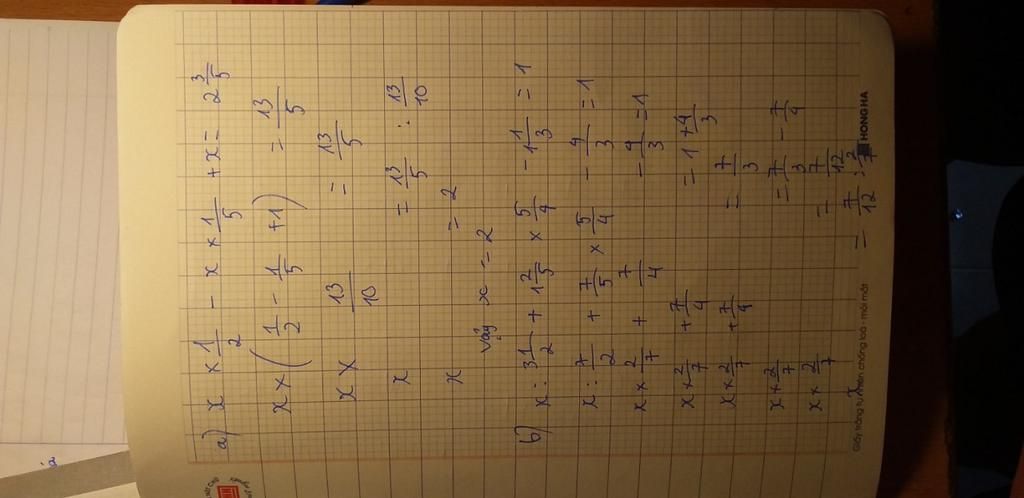 a) x × 1/2 - x × 1/5 + x = 2 3/5
x × (1/2 - 1/5 + 1) = 13/5
x × 13/10 = 13/5
x = 13/5 : 13/10
x = 2
Vậy x = 2
b) x : 3 1/2 + 1 2/5 × 5/4 - 1 1/3 = 1
x : 7/2 + 7/5 × 5/4 - 4/3 = 1
x × 2/7 + 7/4 - 4/3 = 1
x × 2/7 + 7/4 = 1 + 4/3
x × 2/7 + 7/4 = 7/3
x × 2/7 = 7/3 - 7/4
x × 2/7 = 7/12
x = 7/12 : 2/7
Giấy trắng tự nhiên chống loá - mỏi mắt
HONG HA